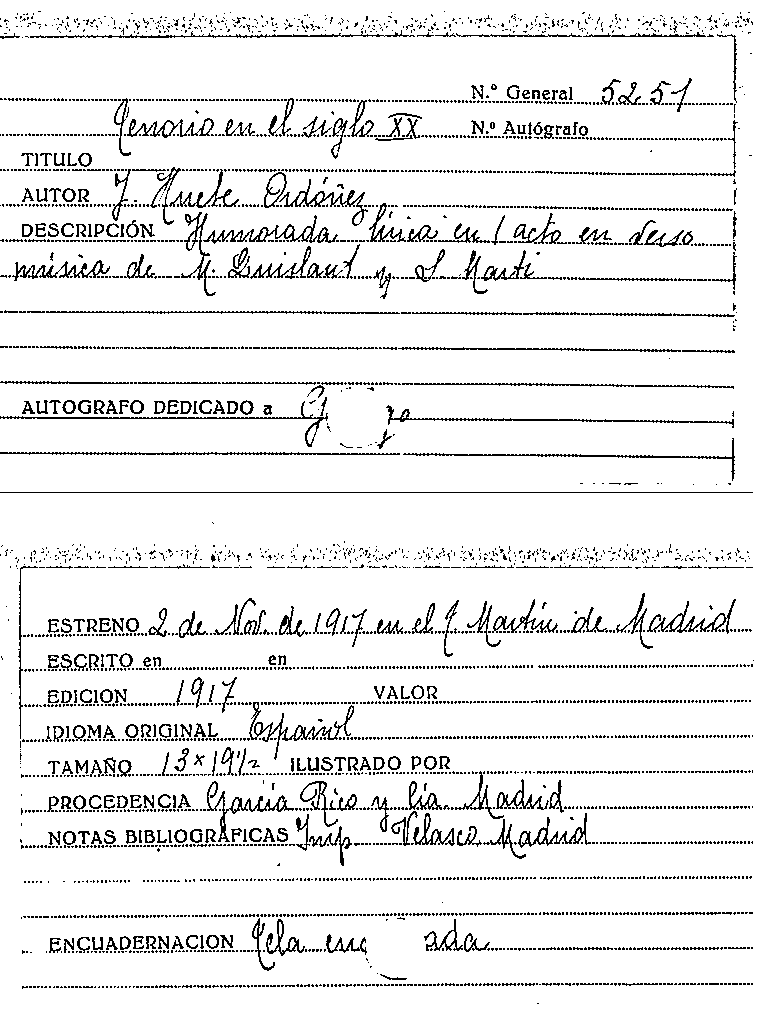 N.º General 5251
Tenorio en el siglo XX N.º Autógrafo
TITULO
AUTOR J. Huete Ordóñez
DESCRIPCIÓN Humorada lírica en 1 acto en verso
música de M. Quislant y S. Martí
AUTOGRAFO DEDICADO a
ESTRENO 2 de Nov. de 1917 en el T. Martín de Madrid
ESCRITO en en
EDICION 1917 VALOR
IDIOMA ORIGINAL Español
TAMAÑO 13 x 19 1/2 ILUSTRADO POR
PROCEDENCIA García Rico y Cía. Madrid
NOTAS BIBLIOGRAFICAS Imp. Velasco. Madrid
ENCUADERNACION Tela